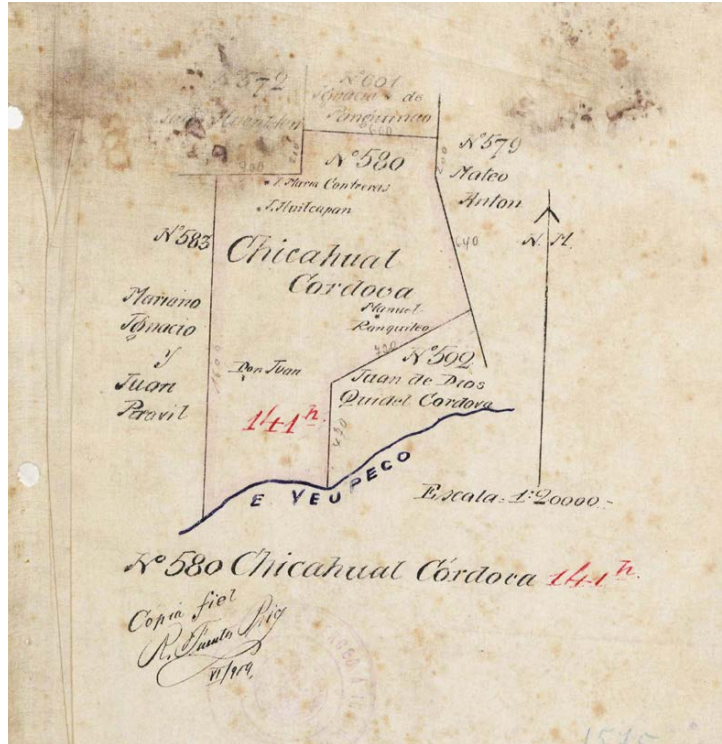 Nº 572
Nº 601
Ignacio de
Panguinao
600
200
Nº 580
Nº 579
Mateo
Anton
J. Maria Contreras
J. Huilcapan
640
N. M.
Nº 583
Chicahual
Cordova
Mariano
Ignacio
y
Juan
Peravil
Manuel
Ranquileo
700
Nº 592
Juan de Dios
Quidel Cordova
Don Juan
1600
141 h.
490
E. YEUPECO
Escala - 1:20000 -
Nº 580 Chicahual Córdova 141 h.
Copia fiel
VI/919